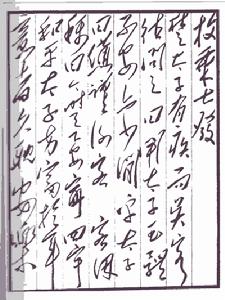 枚乘七發
楚太子有疾而吳客
往問之曰伏聞太子玉體
不安亦少間乎太子
曰憊謹謝客客因
稱曰今時天下安寧四宇
和平太子方富於年
意者久耽安樂